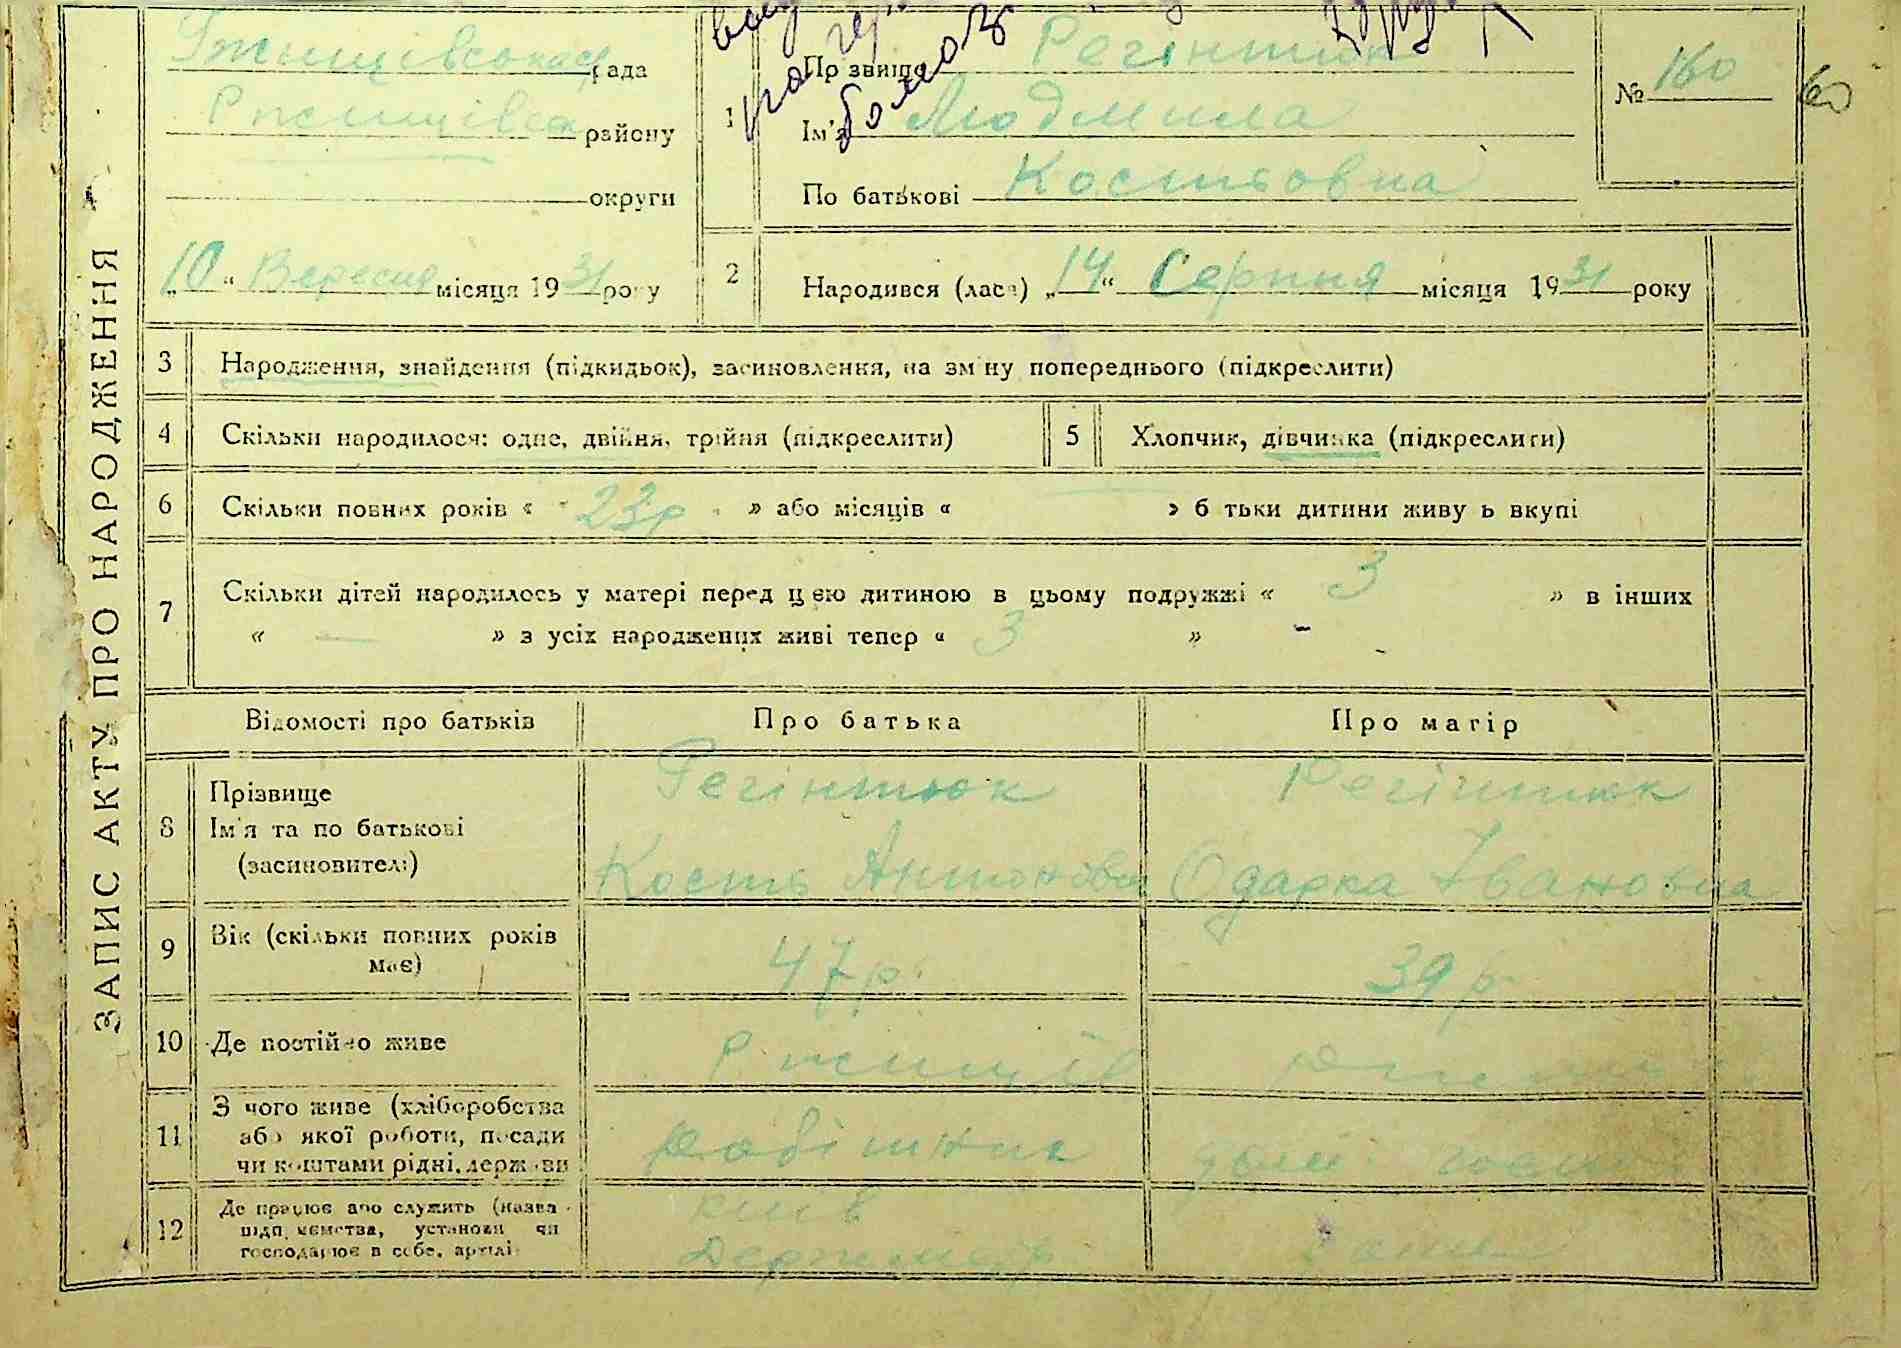 ЗАПИС АКТУ ПРО НАРОДЖЕННЯ
Ржищівська рада
Ржищівськ району
округи
„10“ Вересня місяця 1931 року
1
Прізвище Регінтюк
Ім'я Людмила
По батькові Костьовна
№ 160
60
2
Народився (лася) „14“ Серпня місяця 1931 року
3
Народження, знайдення (підкидьок), засиновлення, на зміну попереднього (підкреслити)
4
Скільки народилося: одне, двійня, трійня (підкреслити)
5
Хлопчик, дівчинка (підкреслити)
6
Скільки повних років « 23р » або місяців « » батьки дитини живуть вкупі
7
Скільки дітей народилось у матері перед цією дитиною в цьому подружжі « 3 » в інших
« — » з усіх народжених живі тепер « 3 »
Відомості про батьків
Про батька
Про матір
8
Прізвище
Ім'я та по батькові
(засиновителі)
Регінтюк
Кость Антонов
Регінтюк
Одарка Івановна
9
Вік (скільки повних років
має)
47 р.
39 р.
10
Де постійно живе
Ржищів
11
З чого живе (хліборобства
або якої роботи, посади
чи коштами рідні, держави
робітник
12
Де працює або служить (назва
підприємства, установи чи
господарює в себе, артілі
Київ